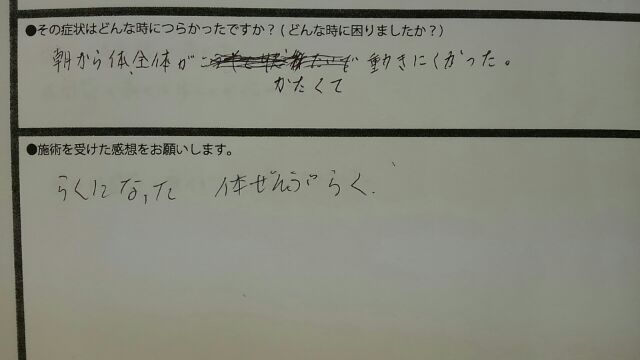 ●その症状はどんな時につらかったですか？(どんな時に困りましたか？)
朝から体、全体が 動きにくかった。
かたくて
●施術を受けた感想をお願いします。
らくになった 体ぜんぶらく.